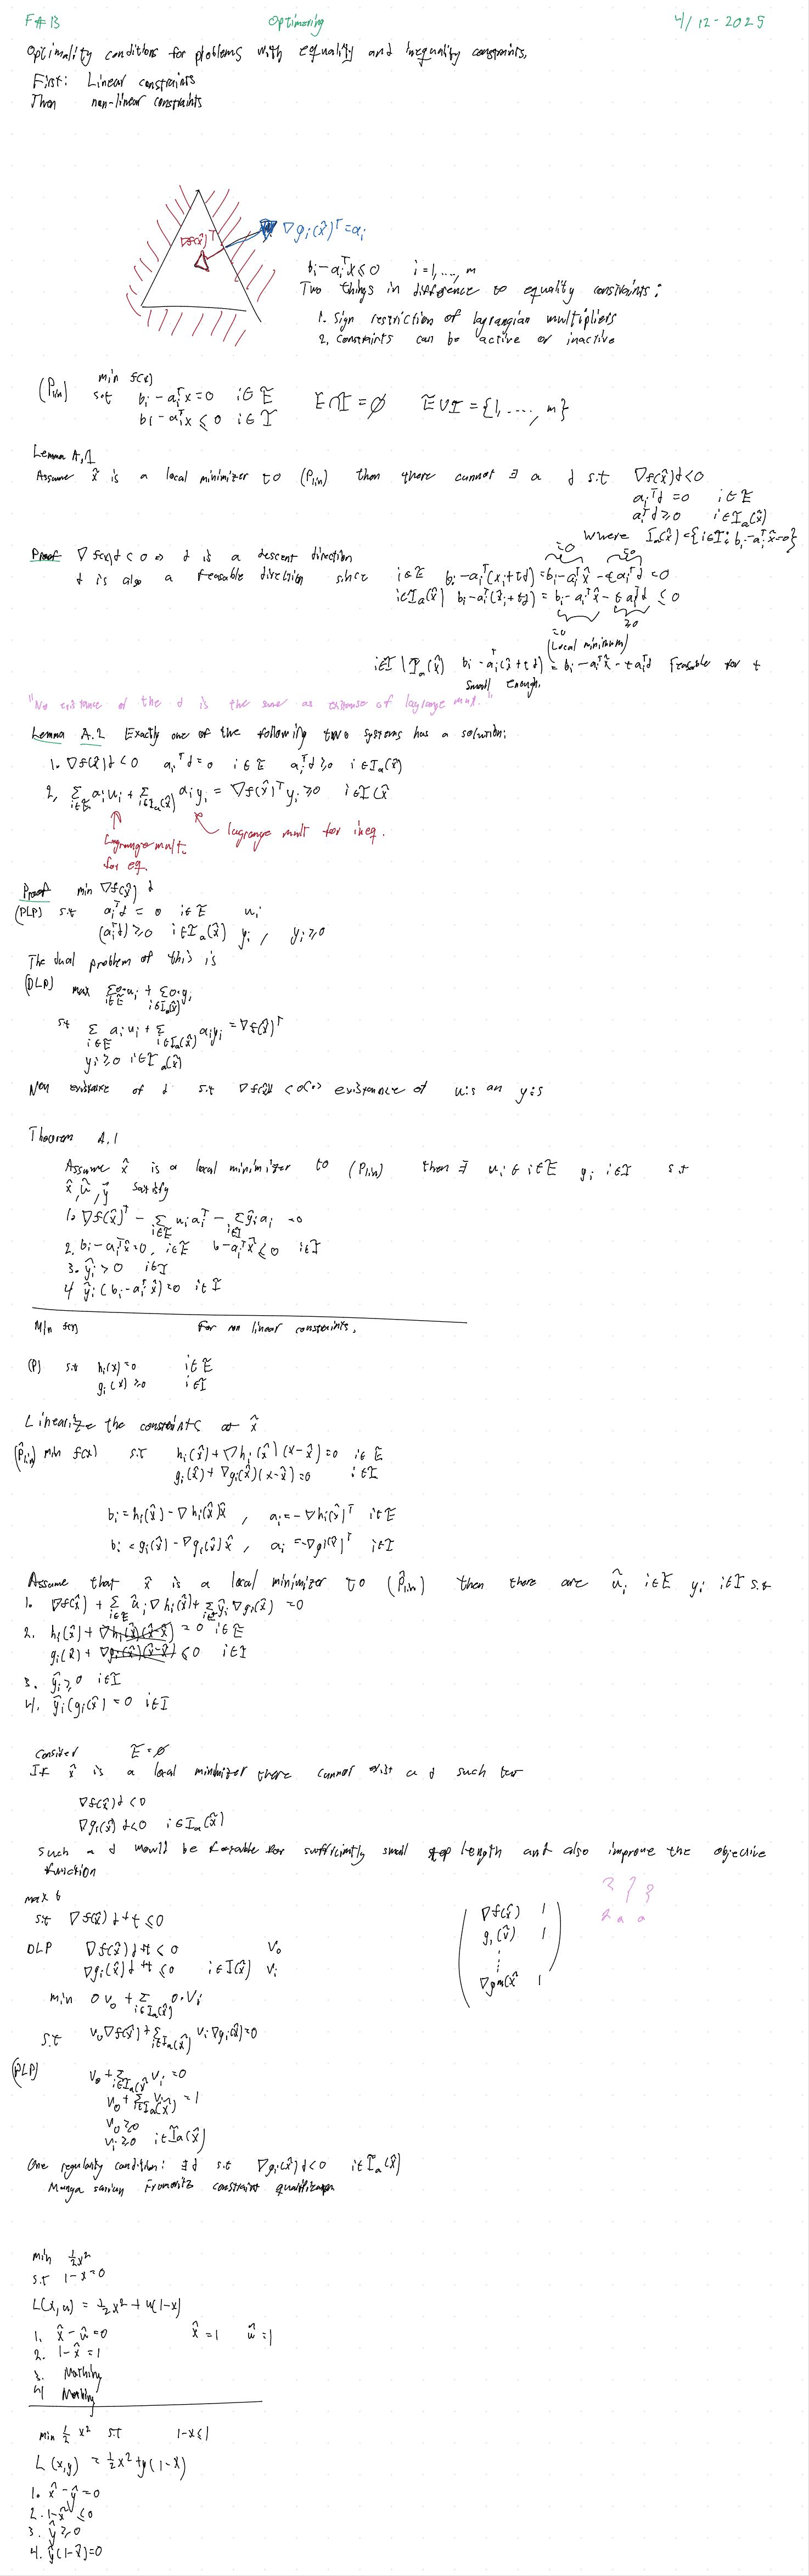 F#13 Optimering 4/12-2025
Optimality conditions for problems with equality and inequality constraints.
First: Linear constraints
Then non-linear constraints
∇f(x̂)ᵀ
∇gᵢ(x̂)ᵀ=aᵢ
bᵢ-aᵢᵀx≤0 i=1,...,m
Two things in difference to equality constraints:
1. Sign restriction of lagrangian multipliers
2. Constraints can be active or inactive
(Plin) min f(x)
s.t bᵢ-aᵢᵀx=0 i∈E E∩I=∅ E∪I={1,...,m}
bᵢ-aᵢᵀx≤0 i∈I
Lemma A.1
Assume x̂ is a local minimizer to (Plin) then there cannot ∃ a d s.t ∇f(x̂)d<0
aᵢᵀd=0 i∈E
aᵢᵀd≥0 i∈Iₐ(x̂)
where Iₐ(x̂)={i∈I: bᵢ-aᵢᵀx̂=0}
Proof ∇f(x)d<0 => d is a descent direction
d is also a feasable direction since i∈E bᵢ-aᵢᵀ(xᵢ+td)=bᵢ-aᵢᵀx̂-taᵢᵀd=0
i∈Iₐ(x̂) bᵢ-aᵢᵀ(x̂ᵢ+td)=bᵢ-aᵢᵀx̂-taᵢᵀd≤0
=0 ≥0
(Local minimum)
i∈I\Iₐ(x̂) bᵢ-aᵢᵀ(x̂+td)=bᵢ-aᵢᵀx̂-taᵢᵀd Feasable for t
small enough.
"No existance of the d is the same as existance of lagrange mult."
Lemma A.2 Exactly one of the following two systems has a solution:
1. ∇f(x̂)d<0 aᵢᵀd=0 i∈E aᵢᵀd≥0 i∈Iₐ(x̂)
2. Σ_{i∈E} aᵢuᵢ+Σ_{i∈Iₐ(x̂)} aᵢyᵢ=∇f(x̂)ᵀ yᵢ≥0 i∈I(x̂
Lagrange mult. for eq.
lagrange mult for ineq.
Proof min ∇f(x̂)d
(PLP) s.t aᵢᵀd=0 i∈E uᵢ
(aᵢᵀd)≥0 i∈Iₐ(x̂) yᵢ, yᵢ≥0
The dual problem of this is
(DLP) max Σ_{i∈E} 0·uᵢ+Σ_{i∈Iₐ(x̂)} 0·yᵢ
st Σ_{i∈E} aᵢuᵢ+Σ_{i∈Iₐ(x̂)} aᵢyᵢ=∇f(x̂)ᵀ
yᵢ≥0 i∈Iₐ(x̂)
Non existance of d s.t ∇f(x̂)d<0 <=> existance of u:s an y:s
Theorem A.1
Assume x̂ is a local minimizer to (Plin) then ∃ uᵢ∈i∈E yᵢ i∈I s.t
x̂,û,ŷ satisfy
1. ∇f(x̂)ᵀ-Σ_{i∈E} uᵢaᵢᵀ-Σ_{i∈I} ŷᵢaᵢ=0
2. bᵢ-aᵢᵀx̂=0, i∈E b-aᵢᵀx̂≤0 i∈I
3. ŷᵢ>0 i∈I
4 ŷᵢ(bᵢ-aᵢᵀx̂)=0 i∈I
Min f(x) For non linear constraints.
(P) s.t hᵢ(x)=0 i∈E
gᵢ(x)≥0 i∈I
Linearize the constraints at x̂
(P̂lin) min f(x) s.t hᵢ(x̂)+∇hᵢ(x̂)(x-x̂)=0 i∈E
gᵢ(x̂)+∇gᵢ(x̂)(x-x̂)=0 i∈I
bᵢ=hᵢ(x̂)-∇hᵢ(x̂)x̂, aᵢ=-∇hᵢ(x̂)ᵀ i∈E
bᵢ=gᵢ(x̂)-∇gᵢ(x̂)x̂, aᵢ=-∇gᵢ(x̂)ᵀ i∈I
Assume that x̂ is a local minimizer to (P̂lin) then there are ûᵢ i∈E yᵢ i∈I s.t
1. ∇f(x̂)+Σ_{i∈E} ûᵢ∇hᵢ(x̂)+Σ_{i∈I} ŷᵢ∇gᵢ(x̂)=0
2. hᵢ(x̂)+∇hᵢ(x̂)(x̂-x̂)=0 i∈E
gᵢ(x̂)+∇gᵢ(x̂)(x̂-x̂)≤0 i∈I
3. ŷᵢ≥0 i∈I
4. ŷᵢ(gᵢ(x̂)=0 i∈I
Consider E=∅
If x̂ is a local minimizer there cannot exist a d such
∇f(x̂)d<0
∇gᵢ(x̂)d<0 i∈Iₐ(x̂)
such a d would be feasable for sufficiently small step length and also improve the objective
function
max t
s.t ∇f(x̂)d+t≤0
DLP ∇f(x̂)d+t<0 v₀
∇gᵢ(x̂)d+t≤0 i∈I(x̂) vᵢ
(∇f(x̂) 1
g₁(x̂) 1
⋮
∇gm(x̂ 1)
? ? ?
min 0v₀+Σ_{i∈Iₐ(x̂)} 0·vᵢ
s.t v₀∇f(x̂)+Σ_{i∈Iₐ(x̂)} vᵢ∇gᵢ(x̂)=0
(PLP) v₀+Σ_{i∈Iₐ(x̂)} vᵢ=0
v₀+Σ_{i∈Iₐ(x̂)} vᵢ=1
v₀≥0
vᵢ≥0 i∈Iₐ(x̂)
One regularity condition: ∃d s.t ∇gᵢ(x̂)d<0 i∈Iₐ(x̂)
Manga sarian Fromovitz constraint
min ½x²
s.t 1-x=0
L(x,u)=½x²+u(1-x)
1. x̂-û=0 x̂=1 û=1
2. 1-x̂=1
3. Nothing
4 Nothing
min ½x² s.t 1-x≤1
L(x,y)=½x²+y(1-x)
1. x̂-ŷ=0
2. 1-x̂≤0
3. ŷ≥0
4. ŷ(1-x̂)=0